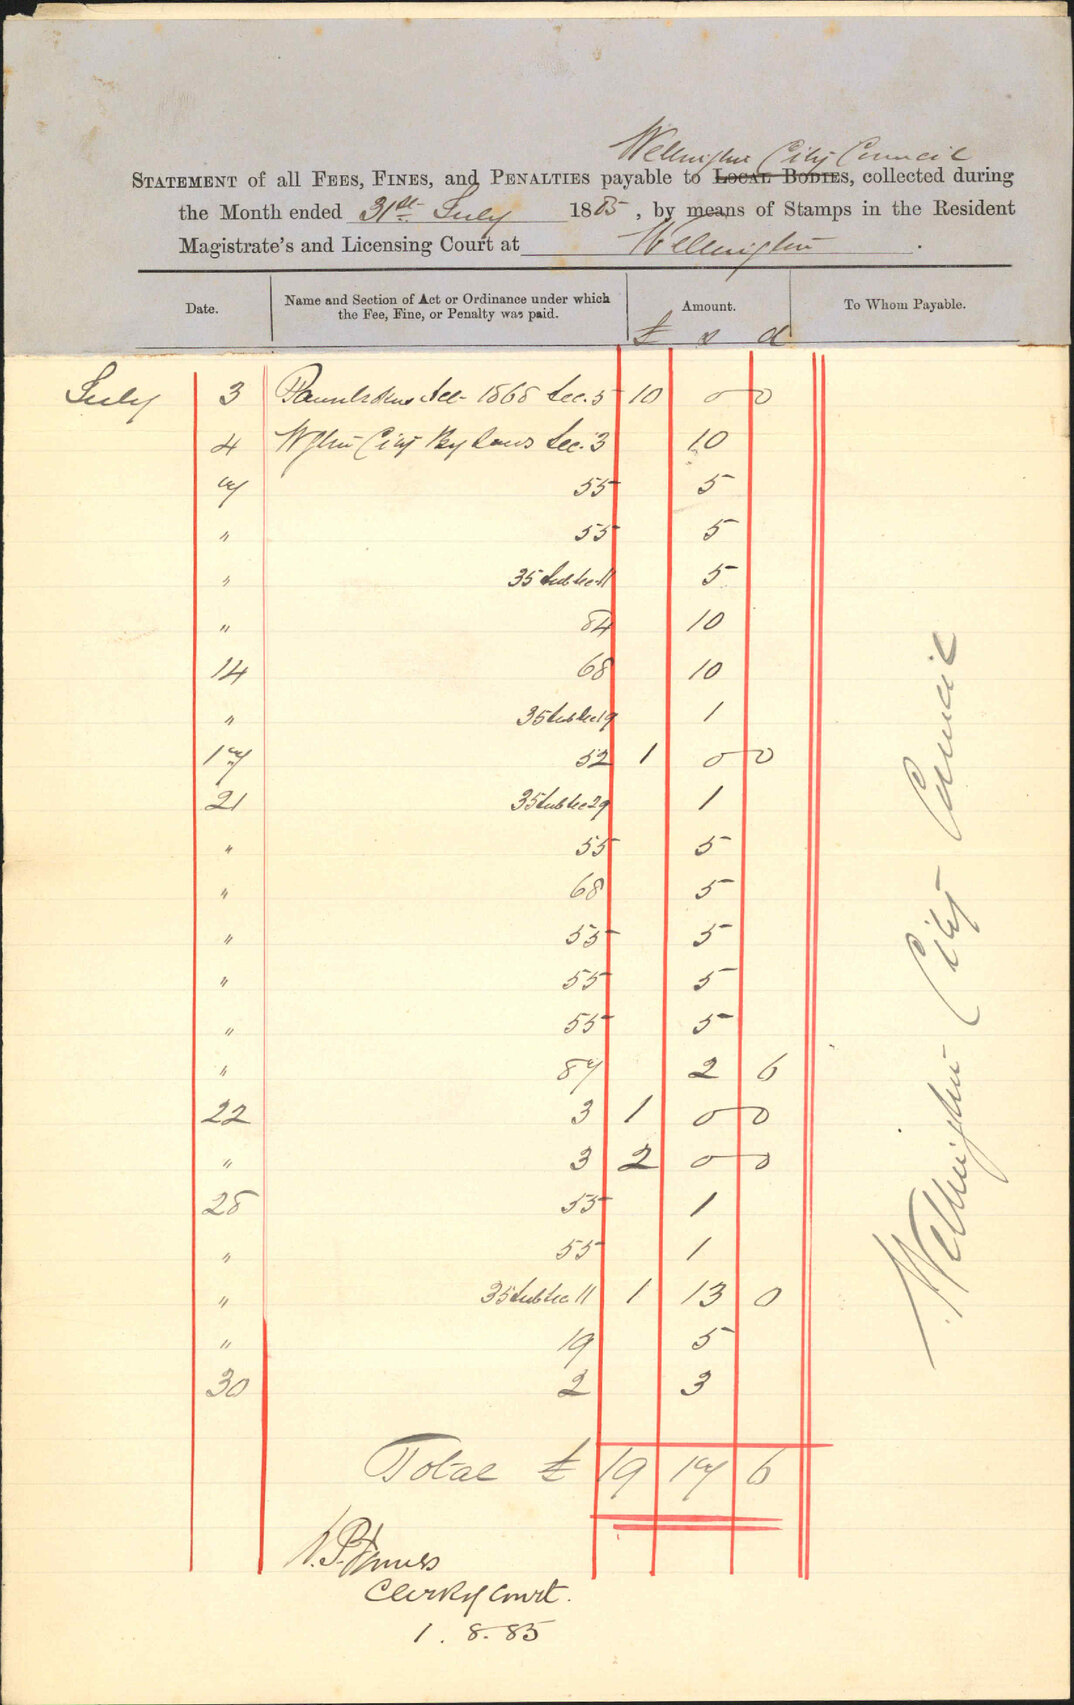 Wellington City Council
STATEMENT of all FEES, FINES, and PENALTIES payable to LOCAL BODIES, collected during
the Month ended 31st July 1885, by means of Stamps in the Resident
Magistrate's and Licensing Court at Wellington.
Date. Name and Section of Act or Ordinance under which the Fee, Fine, or Penalty was paid. Amount. To Whom Payable.
£ s d
July 3 Pawnbrokers Act 1868 Sec. 5 10 0 0
4 Wgton City By Laws Sec. 3 10
7 55 5
" 55 5
" 35 Subsec 11 5
" 84 10
14 68 10
" 35 Subsec 19 1
17 52 1 0 0
21 35 Subsec 29 1
" 55 5
" 68 5
" 55 5
" 55 5
" 55 5
" 87 2 6
22 3 1 0 0
" 3 2 0 0
28 55 1
" 55 1
" 35 Subsec 11 1 13 0
" 19 5
30 2 3
Wellington City Council
Total £ 19 17 6
Clerk of Court.
1. 8. 85